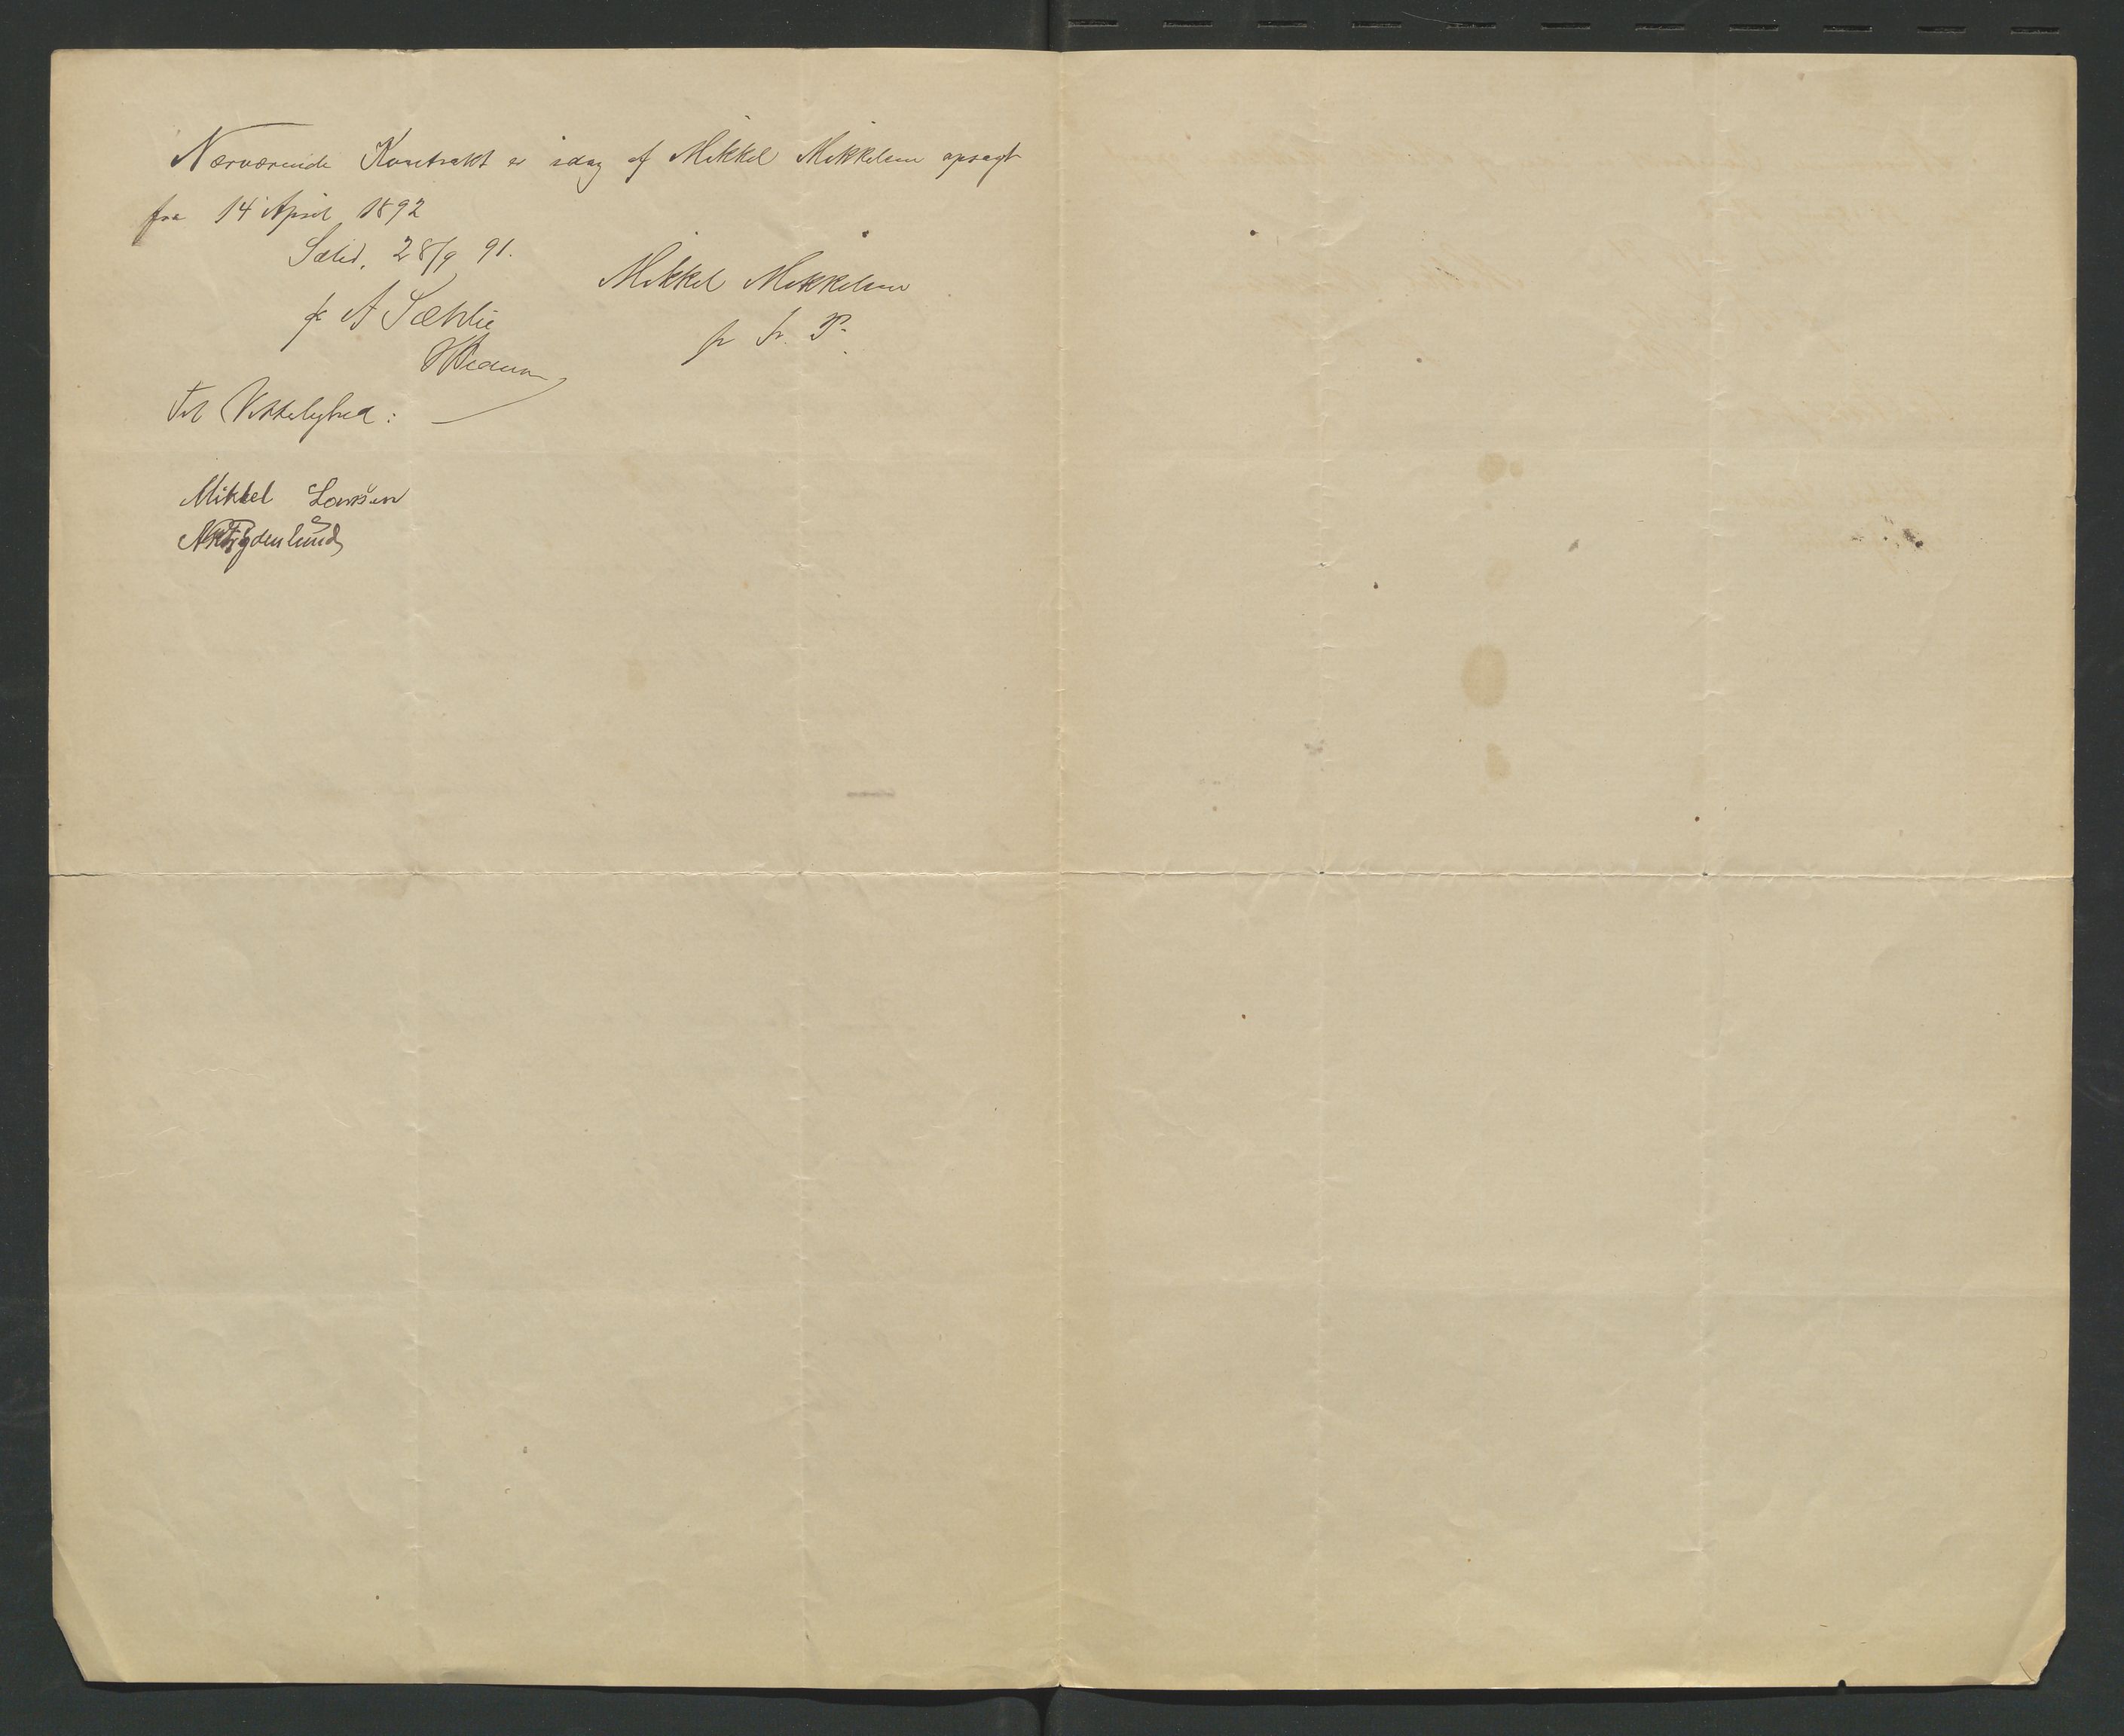 Nærværende Kontrakt er idag af Mikkel Mikkelsen opsagt
fra 14 April 1892
Sælid, 28/9 91.
p A Sæhlie
Mikkel Mikkelsen
m. f. P.
Til Vitterlighed:
Mikkel Larsen